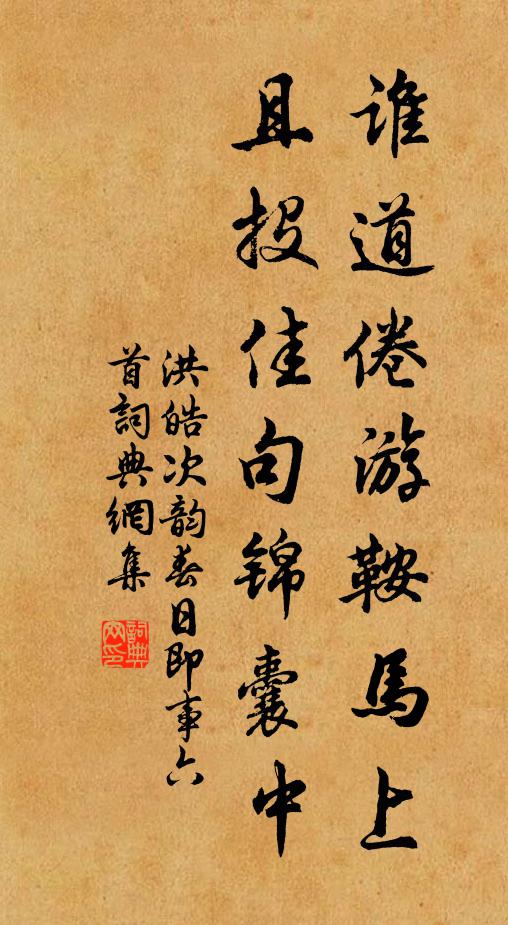 谁道倦游鞍馬上
且投佳句锦囊中
洪皓次韵春日即事六
首詞典網集
詞典
网印